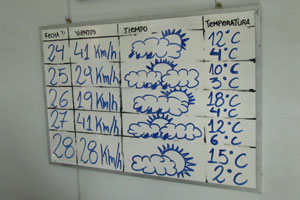 FECHA VIENTOS TIEMPO TEMPERATURA
24 41 Km/h 12°C
4°C
25 24 Km/h 10°C
3°C
26 19 Km/h 18°C
4°C
27 41 Km/h 12°C
6°C
28 28 Km/h 15°C
2°C